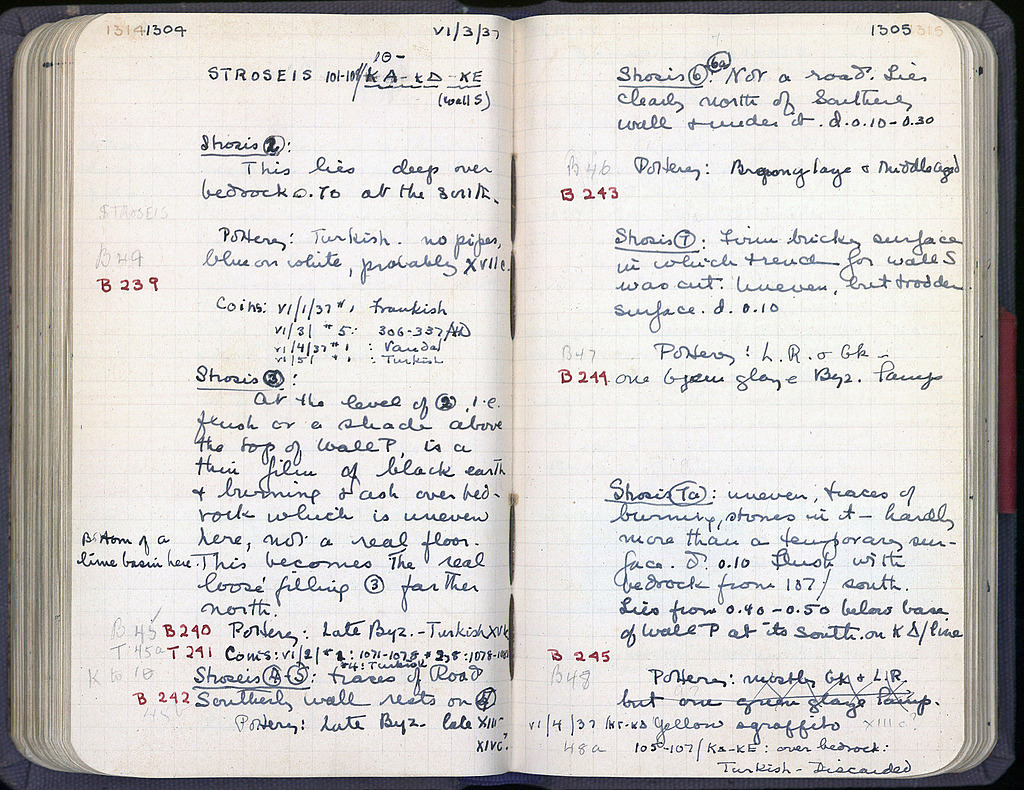 1314 1304
VI/3/37
10-
STROSEIS 101-108/KA-KD-KE
(wall S)
Strosis 2:
This lies deep over
bedrock 0.70 at the South.
STROSEIS
Pottery: Turkish. no pipes,
B49
blue on white, probably XVII c.
B 239
Coins: VI/1/37 #1 Frankish
VI/3/ #5: 306-337 AD
VI/4/37 #1: Vandal
VI/5/ #1: Turkish
Strosis 3:
At the level of 2, i.e.
flush or a shade above
the top of wall P, is a
thin film of black earth
+ burning + ash over bed-
rock which is uneven
Bottom of a
lime basin here.
here, not a real floor.
This becomes the real
loose filling 3 farther
north.
B45 B240 Pottery: Late Byz.-Turkish XV
T45a T241 Coins: VI/2/#1: 1071-1078 #2,8: 1078-
#4: Turkish
K to 10
Stroseis 4-5: traces of Road
B 242 Southerly wall rests on 5
Pottery: Late Byz. late XIII-
XIVc?
1305 1315
Strosis 6, 6a: Not a road. Lies
clearly north of Southerly
wall + under it. d. 0.10-0.30
B46 Pottery: Brown glaze + Middle aged
B 243
Strosis 7: Firm bricky surface
in which trench for wall S
was cut. Uneven, but trodden
surface. d. 0.10
B47 Pottery: L.R. + Gk -
B 244 one green glaze Byz. lamp
Strosis 7a: uneven, traces of
burning, stones in it - hardly
more than a temporary sur-
face. d. 0.10 Flush with
bedrock from 107/ south.
Lies from 0.40-0.50 below base
of wall P at its South. on KD/line
B 245
B48 Pottery: mostly Gk + L.R.
but one green glaze lamp.
VI/4/37 Yellow sgraffito XIII c?
48a 105-107/KA-KE: over bedrock:
Turkish - Discarded